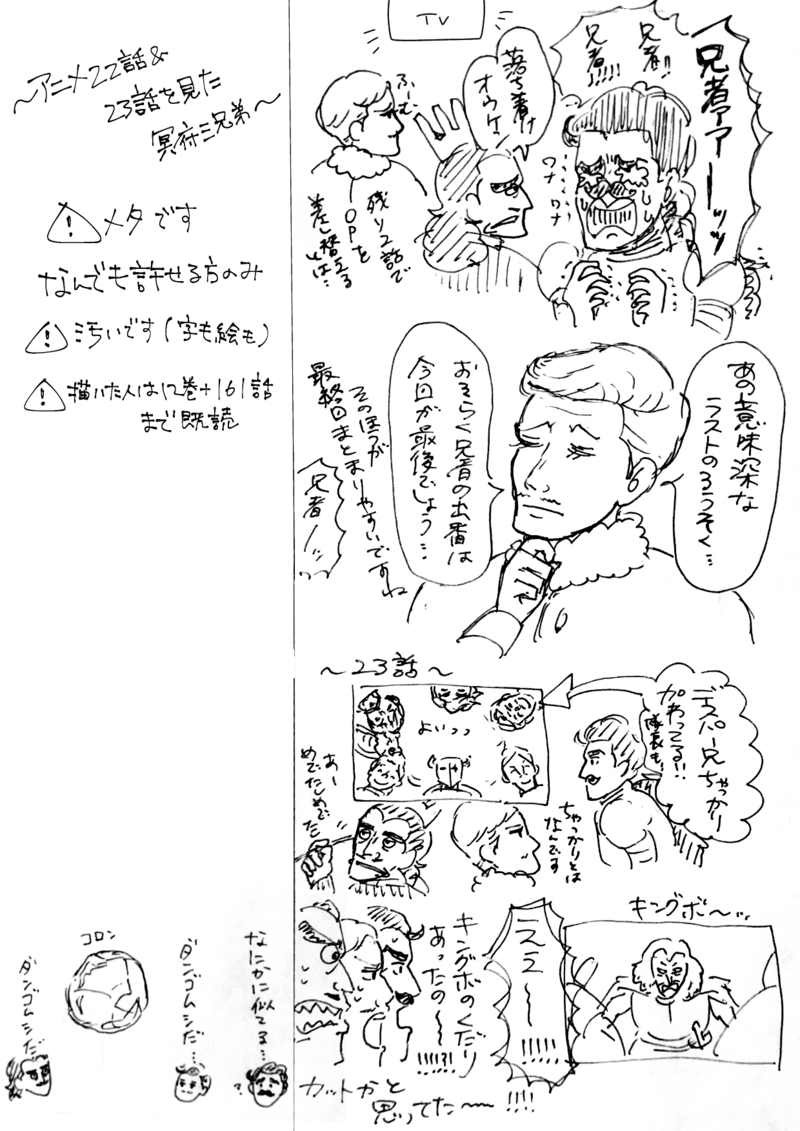 ～アニメ22話&
23話を見た
冥府三兄弟～
メタです
なんでも許せる方のみ
汚いです(字も絵も)
描いた人は12巻+161話
まで既読
TV
兄者!!
兄者!!!!!
兄者アアーーッッ
落ち着け
オウケン
ワナ
ワナ
ふーむ
残り2話で
OPを
差し替える
とは…
あの意味深な
ラストのろうそく…
おそらく兄者の出番は
今回が最後でしょう…
そのほうが
最終回まとまりやすいですね
兄者ーッ
～23話～
デスパー兄ちゃっかり
加わってる!!
隊長も!
よいっっ
ちゃっかりとは
なんです
あー
めでたしめでた
キングボ～…
ええ～～!!!!!
キングボのくだり
あったの～～!!!!!?!
カットかと
思ってた～～!!!!
コロン
なにかに似てる…
?
ダンゴムシだ…
ダンゴムシだ